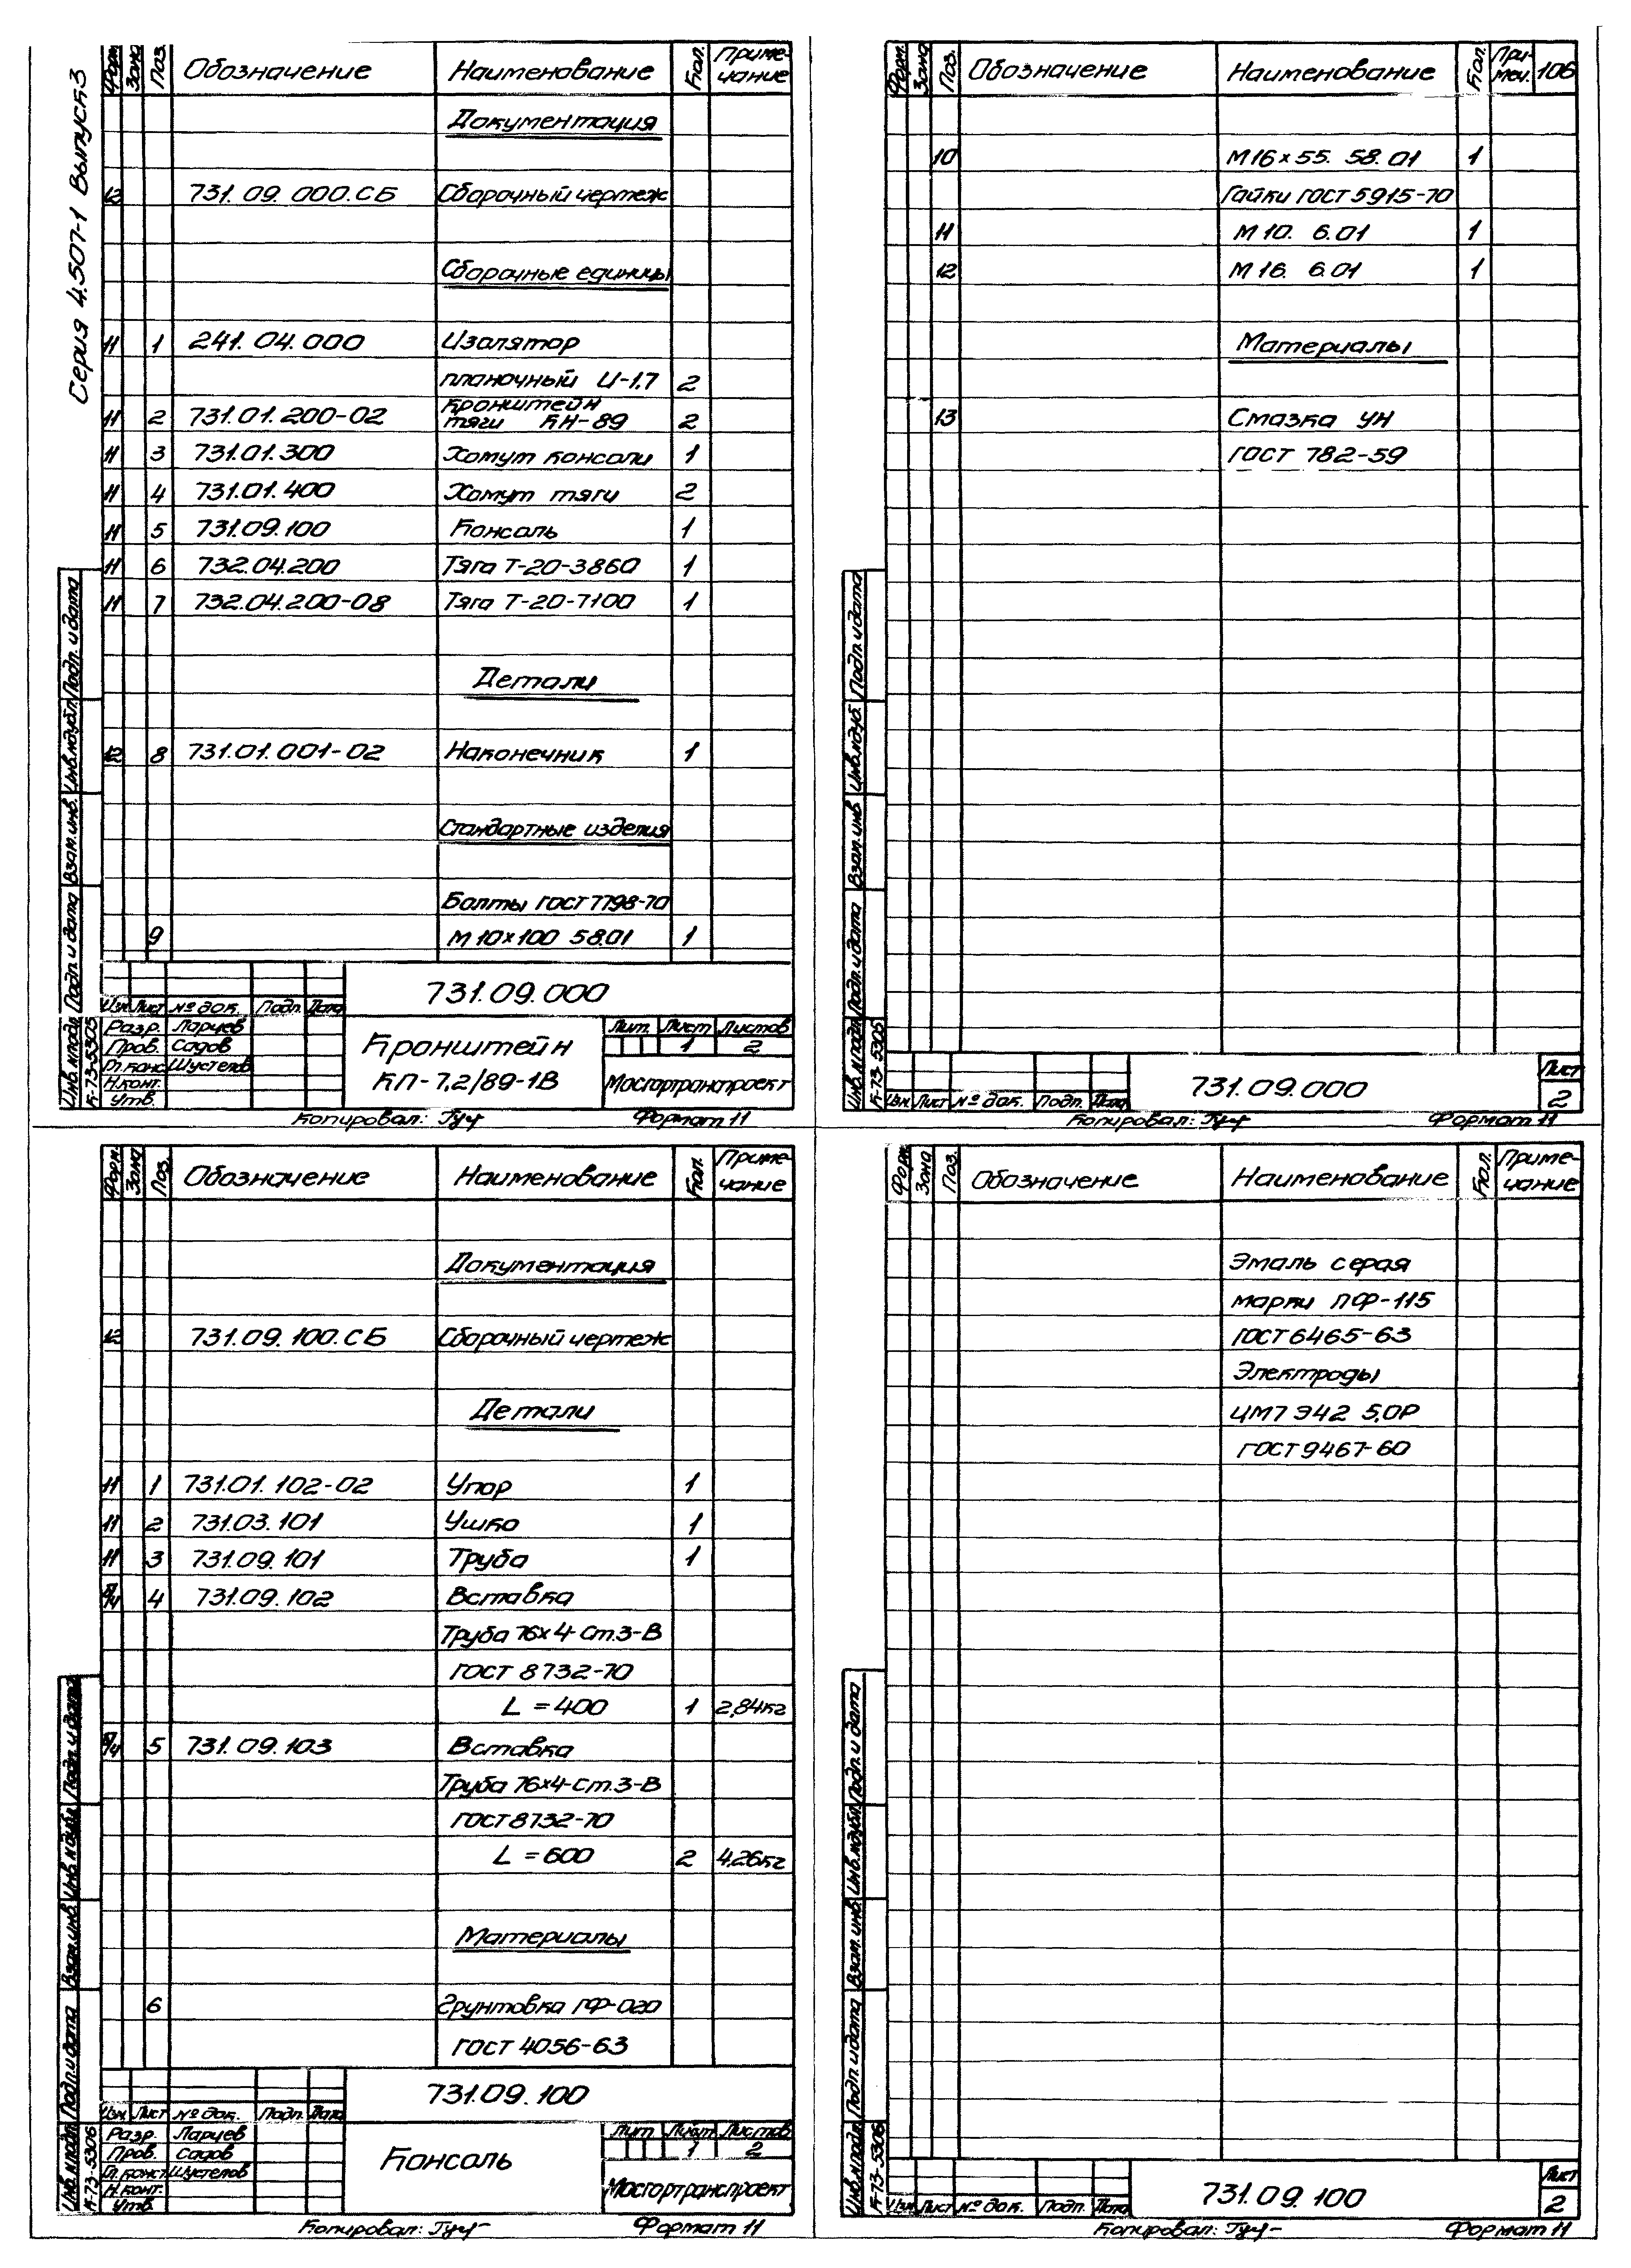 Серия 4.507-1 Выпуск 3
Форм. Зона Поз. Обозначение Наименование Кол. Приме-
чание
Документация
12 731.09.000.СБ Сборочный чертеж
Сборочные единицы
11 1 241.04.000 Изолятор
планочный И-1,7 2
11 2 731.01.200-02 Кронштейн
тяги КН-89 2
11 3 731.01.300 Хомут консоли 1
11 4 731.01.400 Хомут тяги 2
11 5 731.09.100 Консоль 1
11 6 732.04.200 Тяга Т-20-3860 1
11 7 732.04.200-08 Тяга Т-20-7100 1
Детали
12 8 731.01.001-02 Наконечник 1
Стандартные изделия
Болты ГОСТ 7798-70
9 М 10×100 58.01 1
731.09.000
Изм. Лист № док. Подп. Дата
Разр. Ларчев
Пров. Садов
Гл.конс. Шустелов
Н.конт.
Утв.
Кронштейн
КП-7,2/89-1В
Лит. Лист Листов
1 2
Мосгортранспроект
Инв.№подл. Подп. и дата Взам.инв. Инв.№дубл. Подп. и дата
К-73-5305
Копировал: Гуч Формат 11
Форм. Зона Поз. Обозначение Наименование Кол. При-
меч. 106
10 М16×55. 58. 01 1
Гайки ГОСТ 5915-70
11 М 10. 6.01 1
12 М 16. 6.01 1
Материалы
13 Смазка УН
ГОСТ 782-59
Инв.№подл. Подп. и дата Взам.инв Инв.№дуб. Подп. и дата
К-73-5305
Изм. Лист № док. Подп. Дата
731.09.000
Лист
2
Копировал: Гуч Формат 11
Форм. Зона Поз. Обозначение Наименование Кол. Приме-
чание
Документация
12 731.09.100.СБ Сборочный чертеж
Детали
11 1 731.01.102-02 Упор 1
11 2 731.03.101 Ушко 1
11 3 731.09.101 Труба 1
б/ч 4 731.09.102 Вставка
Труба 76×4-Ст.3-В
ГОСТ 8732-70
L = 400 1 2,84кг
б/ч 5 731.09.103 Вставка
Труба 76×4-Ст.3-В
ГОСТ 8732-70
L = 600 2 4,26кг
Материалы
6 Грунтовка ГФ-020
ГОСТ 4056-63
731.09.100
Изм. Лист № док. Подп. Дата
Разр. Ларчев
Пров. Садов
Гл.конст. Шустелов
Н.конт.
Утв.
Консоль
Лит Лист Листов
1 2
Мосгортранспроект
Инв.№подл. Подп. и дата Взам.инв. Инв.№дубл. Подп. и дата
К-73-5306
Копировал: Гуч Формат 11
Форм Зона Поз. Обозначение Наименование Кол. Приме-
чание
Эмаль серая
марки ПФ-115
ГОСТ 6465-63
Электроды
ЦМ7 Э42 5,0Р
ГОСТ 9467-60
Инв.№подл. Подп. и дата Взам. инв. Инв.№дубл. Подп. и дата
К-73-5306
Изм. Лист № док. Подп. Дата
731.09.100
Лист
2
Копировал: Гуч Формат 11